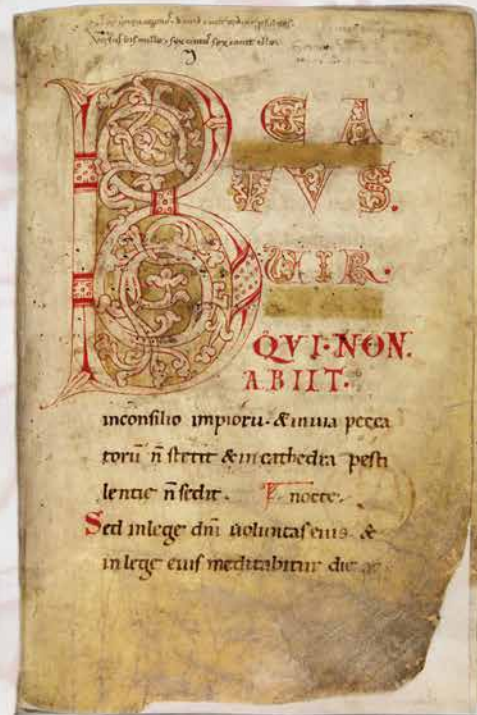 B EA
TVS.
VIR.
QVI·NON.
ABIIT.
inconsilio impioru̅· & inuia pecca
toru̅ n̅ stetit & incathedra pesti
lentie n̅ sedit. nocte.
Sed inlege dn̅i uoluntas eius. &
inlege eius meditabitur die ac